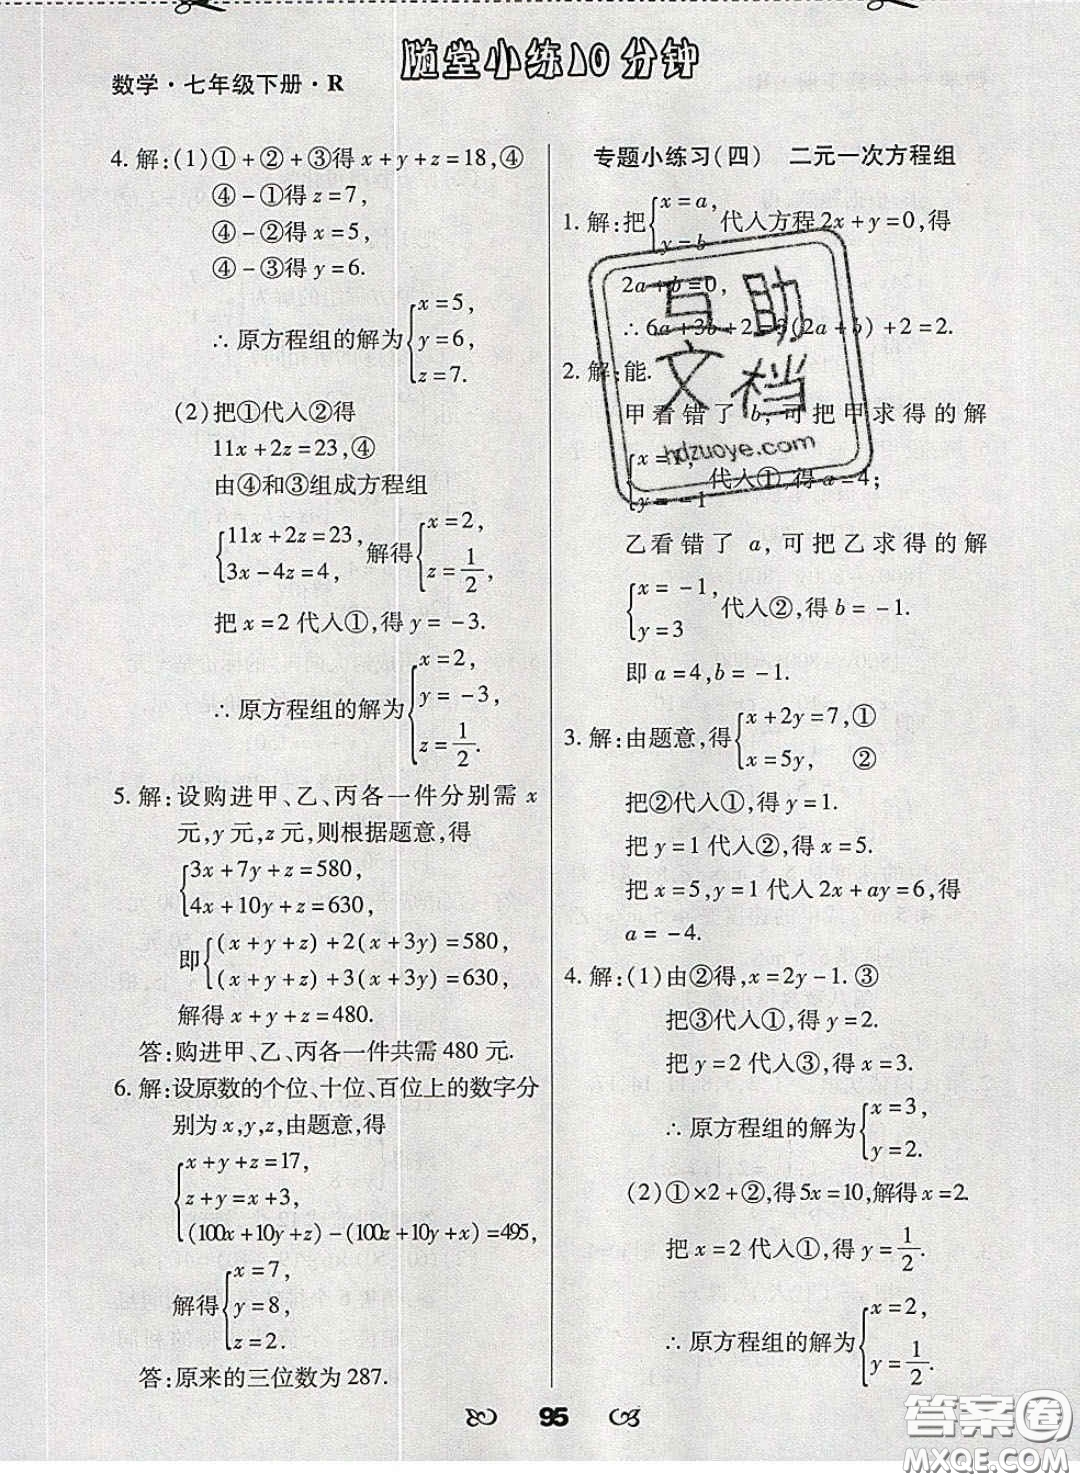 随堂小练10分钟
数学·七年级下册·R
4. 解:(1)①+②+③得 x+y+z=18,④
④-①得 z=7,
④-②得 x=5,
④-③得 y=6.
∴ 原方程组的解为{x=5,
y=6,
z=7.
(2)把①代入②得
11x+2z=23,④
由④和③组成方程组
{11x+2z=23,
3x-4z=4, 解得{x=2,
z=1/2,
把 x=2 代入①,得 y=-3.
∴ 原方程组的解为{x=2,
y=-3,
z=1/2.
5. 解:设购进甲、乙、丙各一件分别需 x
元,y 元,z 元,则根据题意,得
{3x+7y+z=580,
4x+10y+z=630,
即{(x+y+z)+2(x+3y)=580,
(x+y+z)+3(x+3y)=630,
解得 x+y+z=480.
答:购进甲、乙、丙各一件共需 480 元.
6. 解:设原数的个位、十位、百位上的数字分
别为 x,y,z,由题意,得
{x+y+z=17,
z+y=x+3,
(100x+10y+z)-(100z+10y+x)=495,
解得{x=7,
y=8,
z=2.
答:原来的三位数为 287.
专题小练习(四) 二元一次方程组
1. 解:把{x=a,
y=b 代入方程 2x+y=0,得
2a+b=0,
∴ 6a+3b+2=3(2a+b)+2=2.
2. 解:能.
甲看错了 b,可把甲求得的解
{x=
y=-1 代入①,得 a=4;
乙看错了 a,可把乙求得的解
{x=-1,
y=3 代入②,得 b=-1.
即 a=4,b=-1.
3. 解:由题意,得{x+2y=7,①
x=5y, ②
把②代入①,得 y=1.
把 y=1 代入②,得 x=5.
把 x=5,y=1 代入 2x+ay=6,得
a=-4.
4. 解:(1)由②得,x=2y-1. ③
把③代入①,得 y=2.
把 y=2 代入③,得 x=3.
∴ 原方程组的解为{x=3,
y=2.
(2)①×2+②,得 5x=10,解得 x=2.
把 x=2 代入①,得 y=1/2.
∴ 原方程组的解为{x=2,
y=1/2.
95
互助
文档
hdzuoye.com
答案圈
MXQE.COM